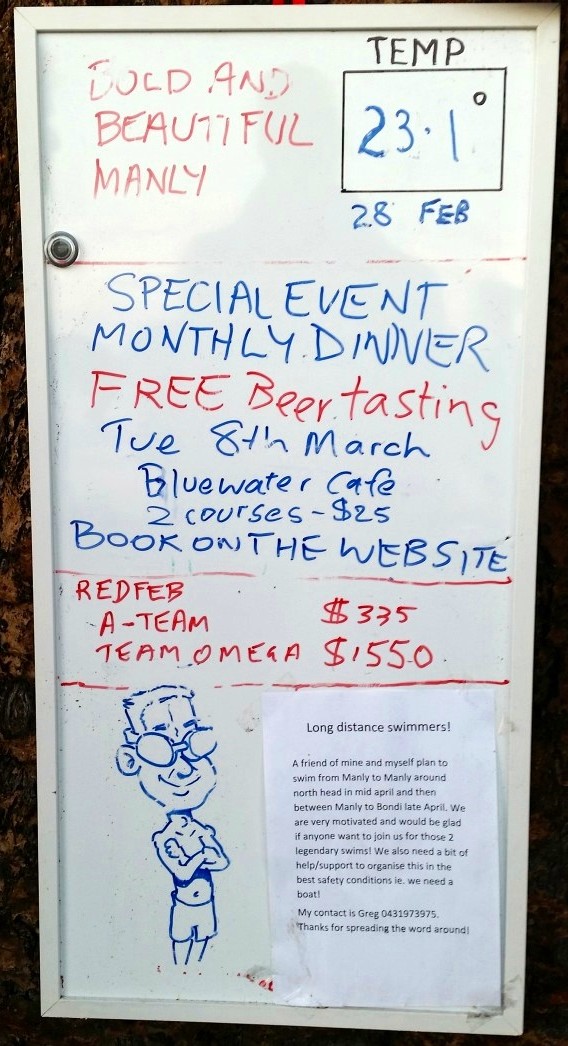 BOLD AND
BEAUTIFUL
MANLY
TEMP
23.1°
28 FEB
SPECIAL EVENT
MONTHLY DINNER
FREE Beer tasting
Tue 8th March
Bluewater Cafe
2 courses - $25
BOOK ON THE WEBSITE
REDFEB
A-TEAM $335
TEAM OMEGA $1550
Long distance swimmers!
A friend of mine and myself plan to
swim from Manly to Manly around
north head in mid april and then
between Manly to Bondi late April. We
are very motivated and would be glad
if anyone want to join us for those 2
legendary swims! We also need a bit of
help/support to organise this in the
best safety conditions ie. we need a
boat!
My contact is Greg 0431973975.
Thanks for spreading the word around!